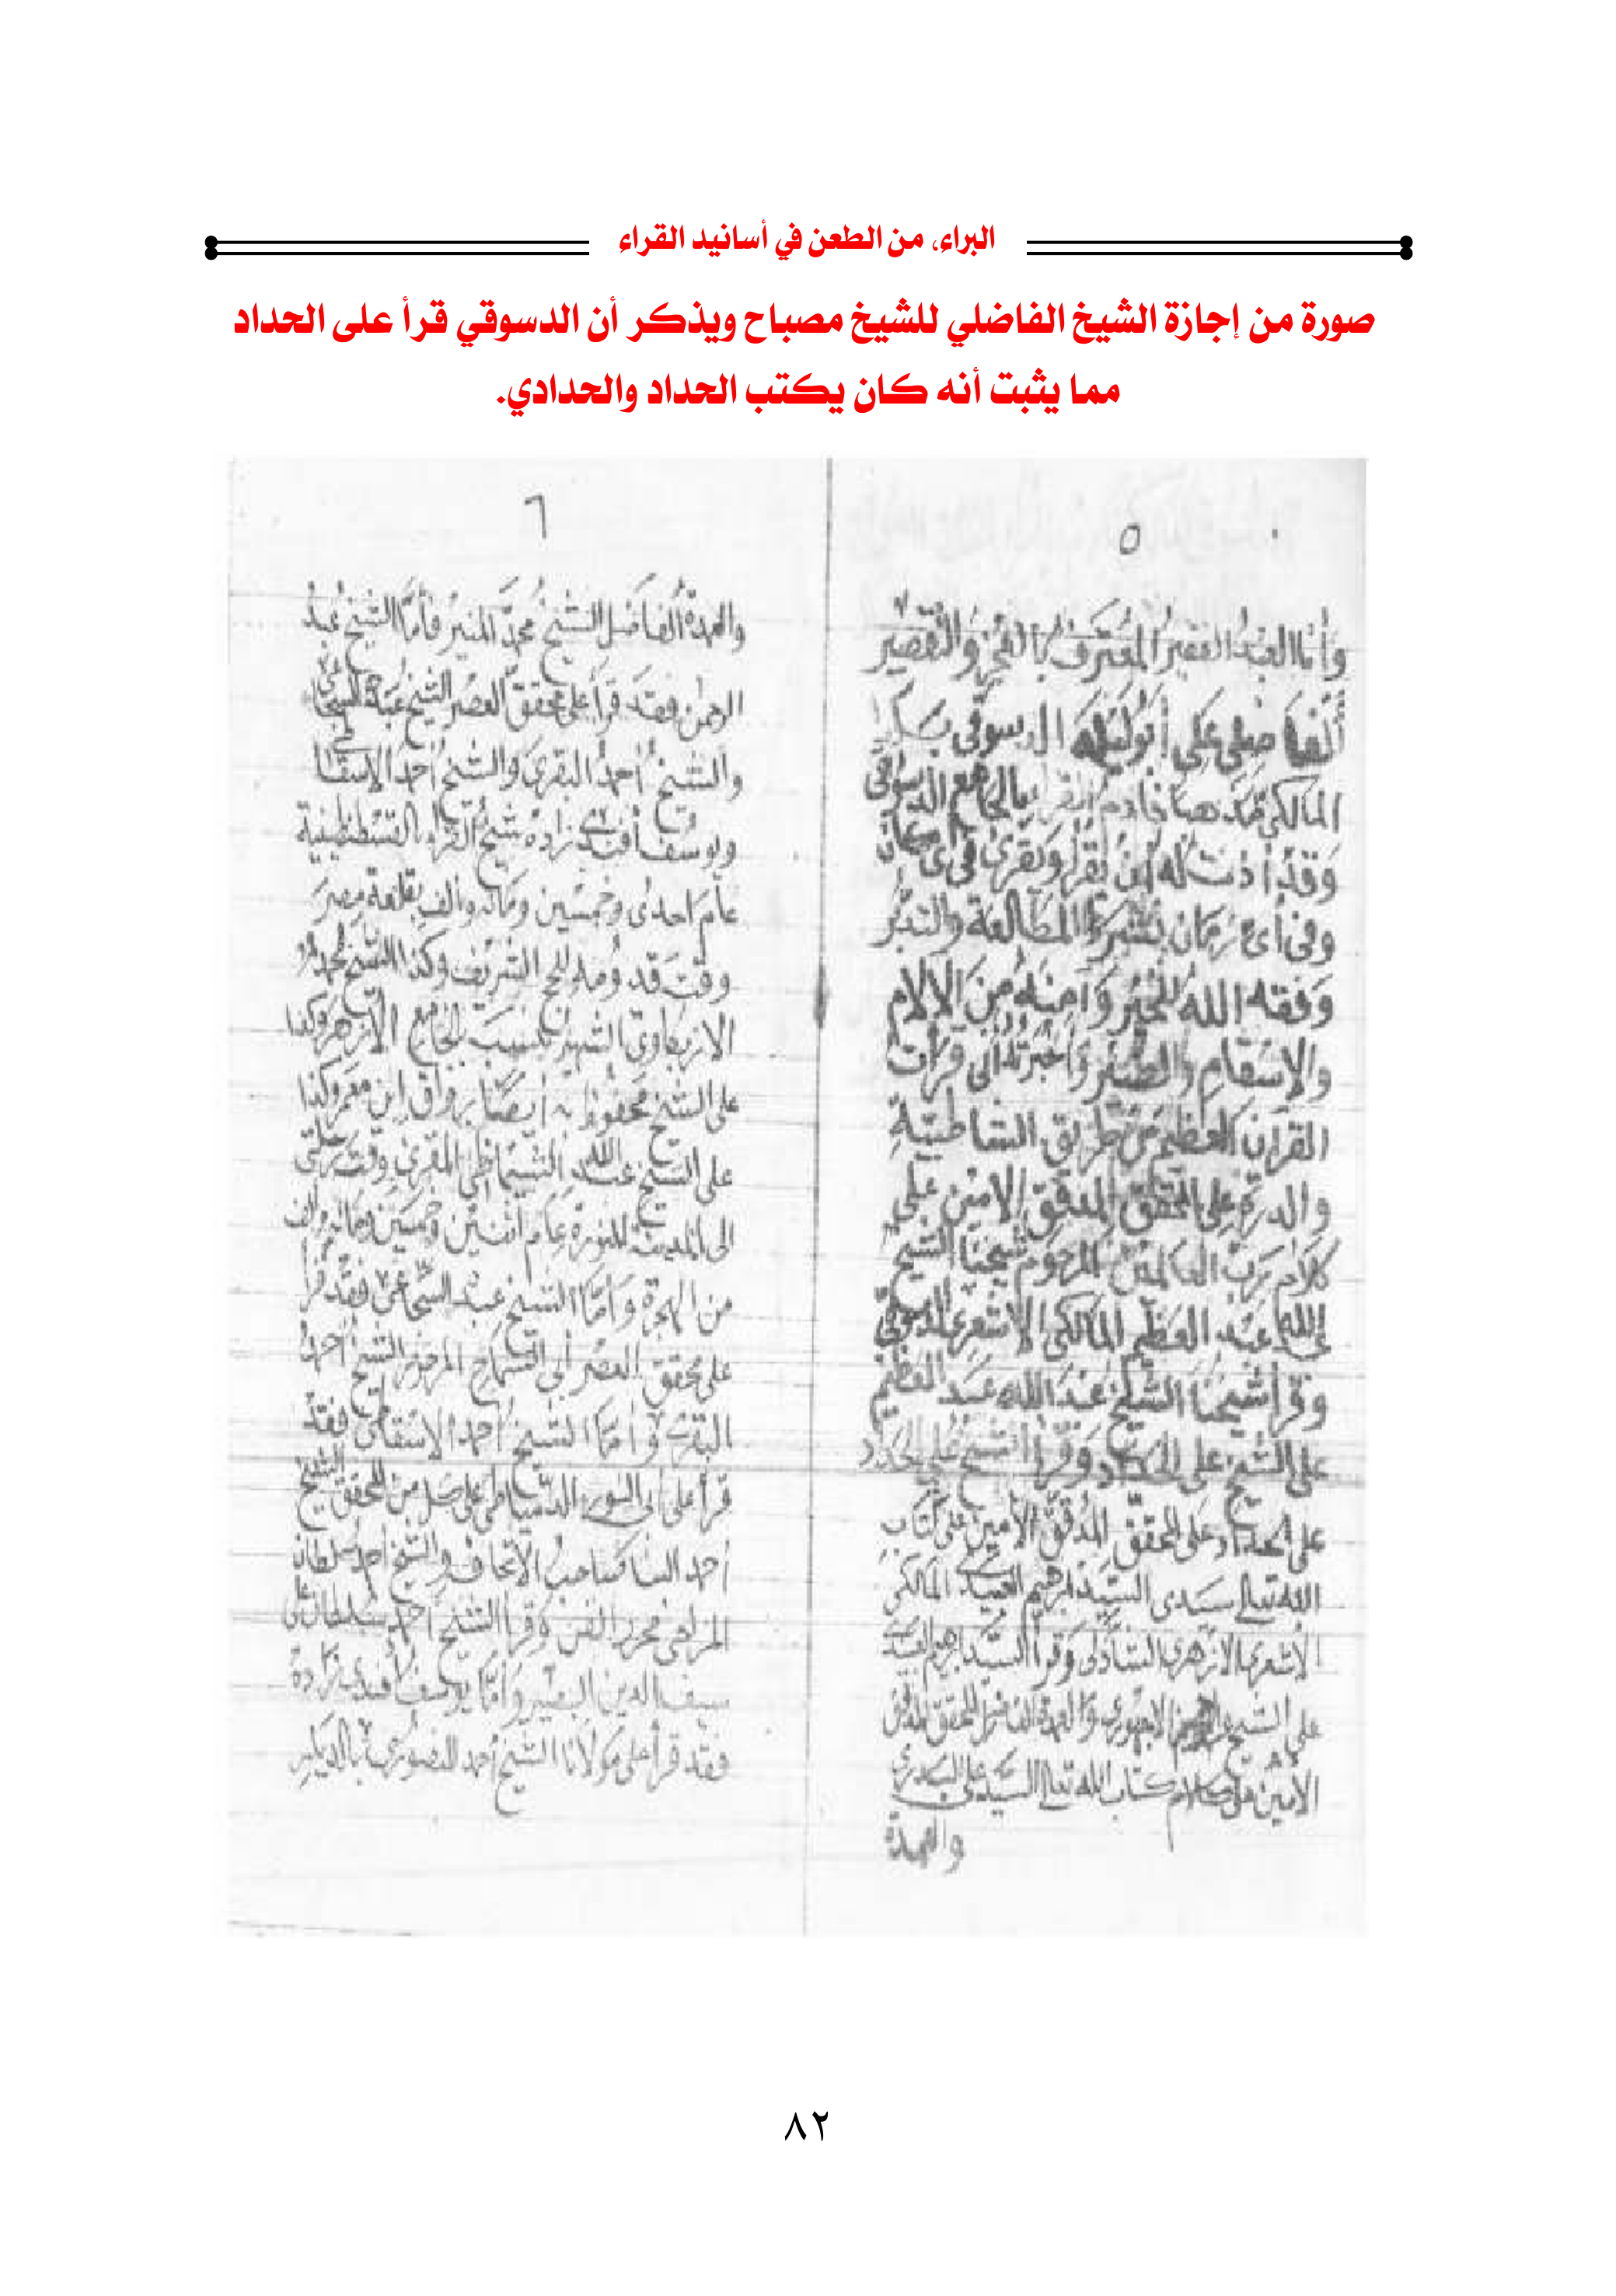 البراء، من الطعن في أسانيد القراء
صورة من إجازة الشيخ الفاضلي للشيخ مصباح ويذكر أن الدسوقي قرأ على الحداد
مما يثبت أنه كان يكتب الحداد والحدادي.
٥
وأنا العبد الفقير المعترف بالعجز والتقصير
الفاضلي علي أبو ليله الدسوقي بلدا
المالكي مذهبا خادم القراء بالجامع الدسوقي
وقد أذنت له أن يقرأ ويقرئ في أي مكان
وفي أي زمان بشرط المطالعة والتدبر
وفقه الله للخير وآمنه من الآلام
والاسقام وأخبرته أني قرأت
القرآن العظيم من طريق الشاطبية
والدرة على المحقق المدقق الامين على
كلام رب العالمين المرحوم شيخنا الشيخ
عبد الله عبد العظيم المالكي الاشعري الدسوقي
وقرأ شيخنا الشيخ عبد الله عبد العظيم
على الشيخ على الحداد وقرأ الشيخ على الحداد
على المحقق المدقق الأمين على كتاب
الله تعالى سيدي السيد ابرهيم العبيدي المالكي
الاشعري الازهري الشاذلي وقرأ السيد ابرهيم العبيدي
على الشيخ عبد الرحمن الاجهوري والعمدة الفاضل المحقق المدقق
الأمين على كتاب الله تعالى السيد على البدري
والعمدة
٦
والعمدة الفاضل الشيخ محمد المنير فأما الشيخ عبد
الرحمن فقد قرأ على محقق العصر الشيخ عبده السجاعي
والشيخ أحمد البقري والشيخ أحمد الاسقاطي
ويوسف أفندي زاده شيخ القراء بالقسطنطينية
عام احدى وخمسين ومائه وألف بقلعة مصر
وقت قدومه للحج الشريف وكذا الشيخ محمد
الازبكاوي الشهير بالجامع الازهر وكذا
على الشيخ محفوظ به أيضا برواق ابن معمر وكذا
على الشيخ عبد الله الشماطي المغربي وقت رحلتي
الى المدينة المنورة عام اثنين وخمسين ومائه وألف
من الهجرة وأما الشيخ عبده السجاعي فقد قرأ
على محقق العصر أبي السماح المرحوم الشيخ أحمد
البقري وأما الشيخ أحمد الاسقاطي فقد
قرأ على أبي النور الدمياطي على كل من المحقق الشيخ
أحمد البنا صاحب الاتحاف والشيخ أحمد سلطان
المزاحي محرر الفن وقرأ الشيخ أحمد سلطان على
سيف الدين البصير وأما يوسف أفندي زاده
فقد قرأ على مولانا الشيخ أحمد المنصوري بالديار
٨٢